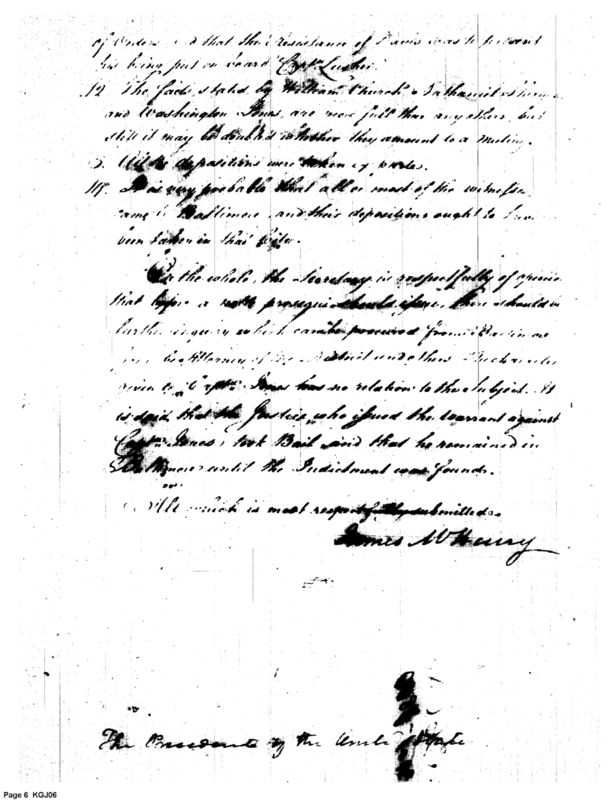 of orders and that the resistance of Davis was to prevent
his being put on board Capt. Lusher.
12. The facts stated by William Church & Nathaniel
and Washington Jones, are more full than any other, but
still it may be doubted whether they amount to a mutiny.
3. All the depositions were taken ex parte.
14. It is very probable that all or most of the witnesses
came to Baltimore, and their depositions ought to have
been taken in that City.
On the whole, the Secretary is respectfully of opinion
that before a noli prosequi should issue, there should be
further inquiry which can be procured from Baltimore
Attorney of the District and others
given to Captn. Jones has no relation to the subject. It
is said that the Justice, who issued the warrant against
Captn. Jones, took Bail and that he remained in
Baltimore until the Indictment was found.
All which is most respectfully submitted.
James McHenry
The President of the United States
Page 6 KGJ06